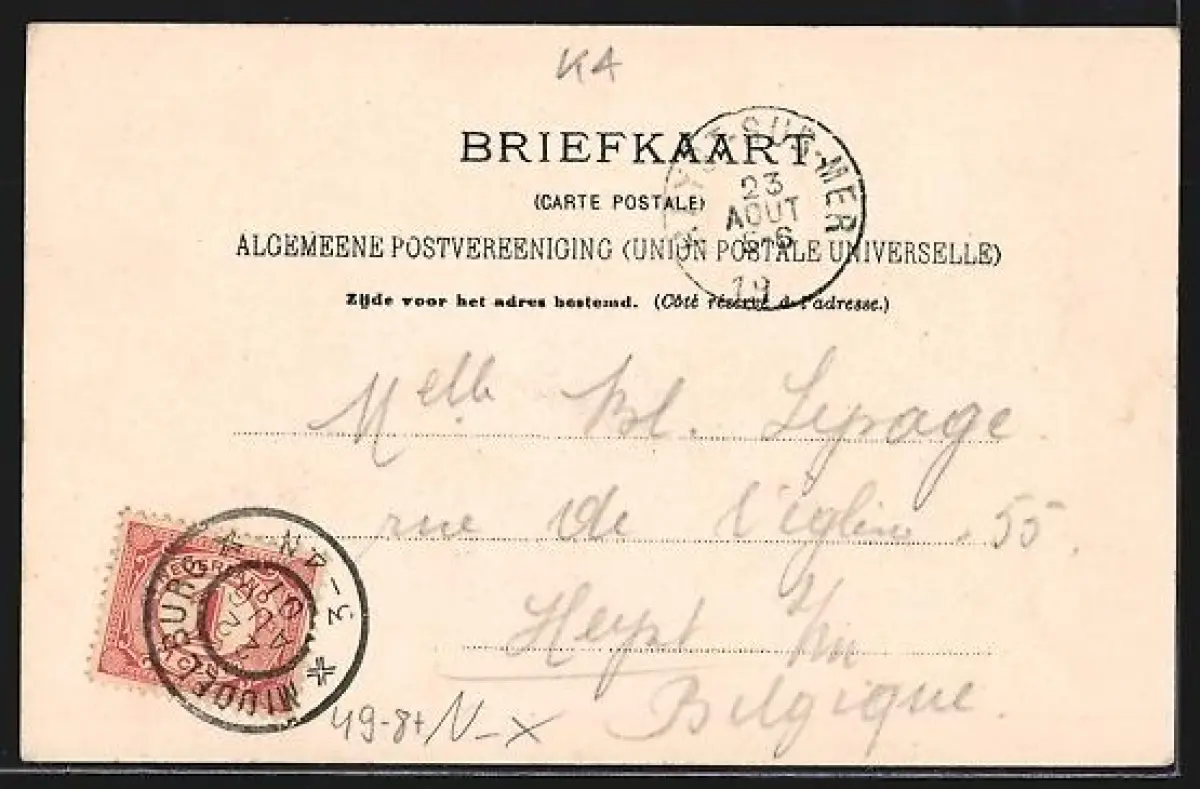 K4
BRIEFKAART.
(CARTE POSTALE)
ALGEMEENE POSTVEREENIGING (UNION POSTALE UNIVERSELLE)
Zijde voor het adres bestemd. (Côté réservé à l'adresse.)
HEYST-SUR-MER
23
AOUT
19
Melle Bl. Lepage
rue de l'église 55.
Heyst s/m
Belgique.
NEDERLAND
MIDDELBURG
3-4N
49-8+ N-X